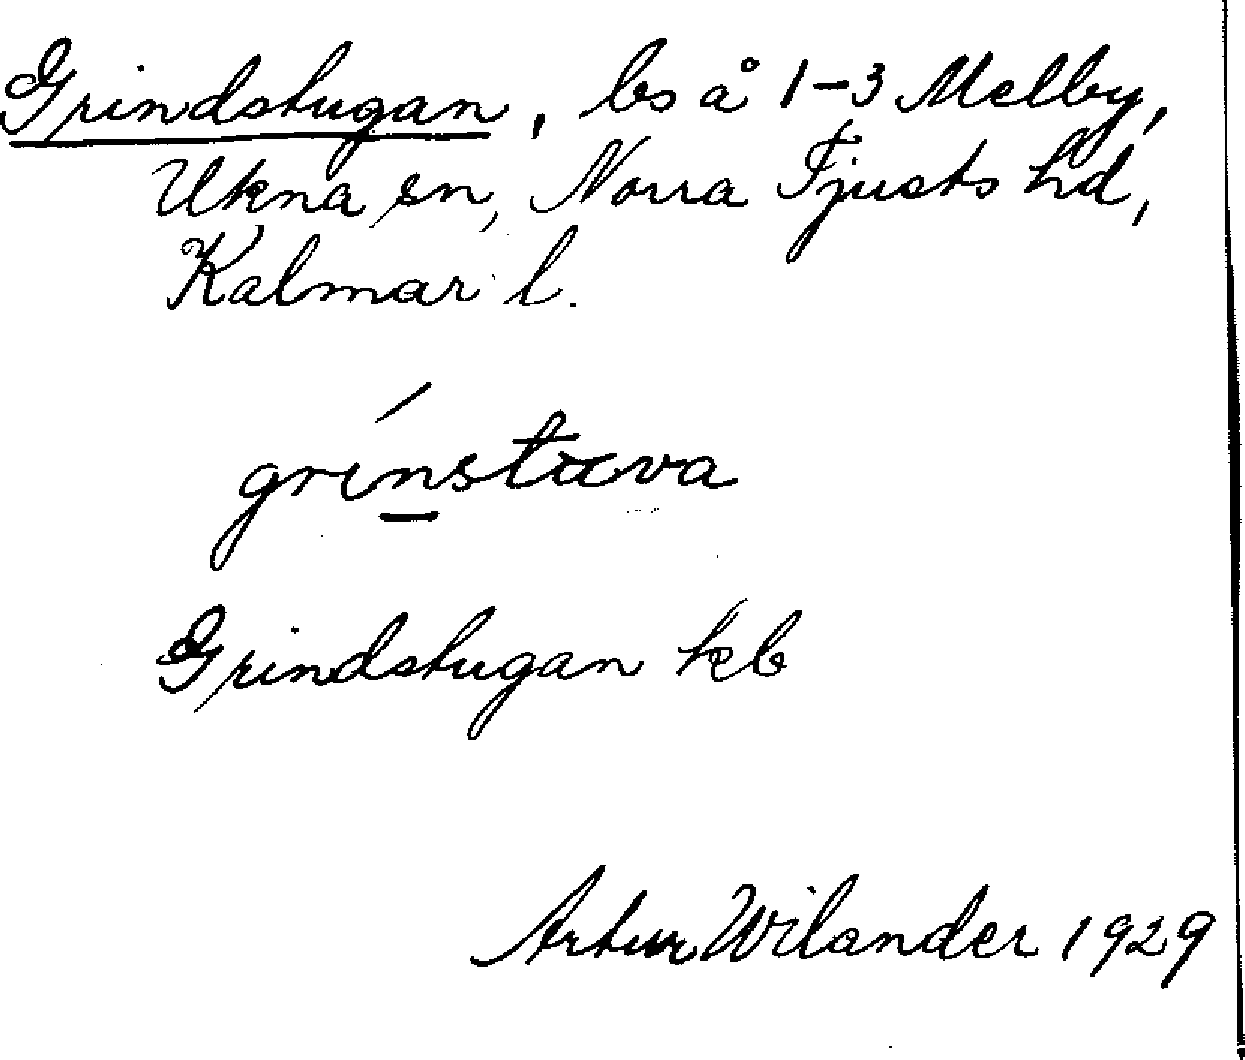 Grindstugan, ls å 1-3 Melby,
Ukna sn, Norra Tjusts hd,
Kalmar l.
grínstæva
Grindstugan kb
Artur Wilander 1929